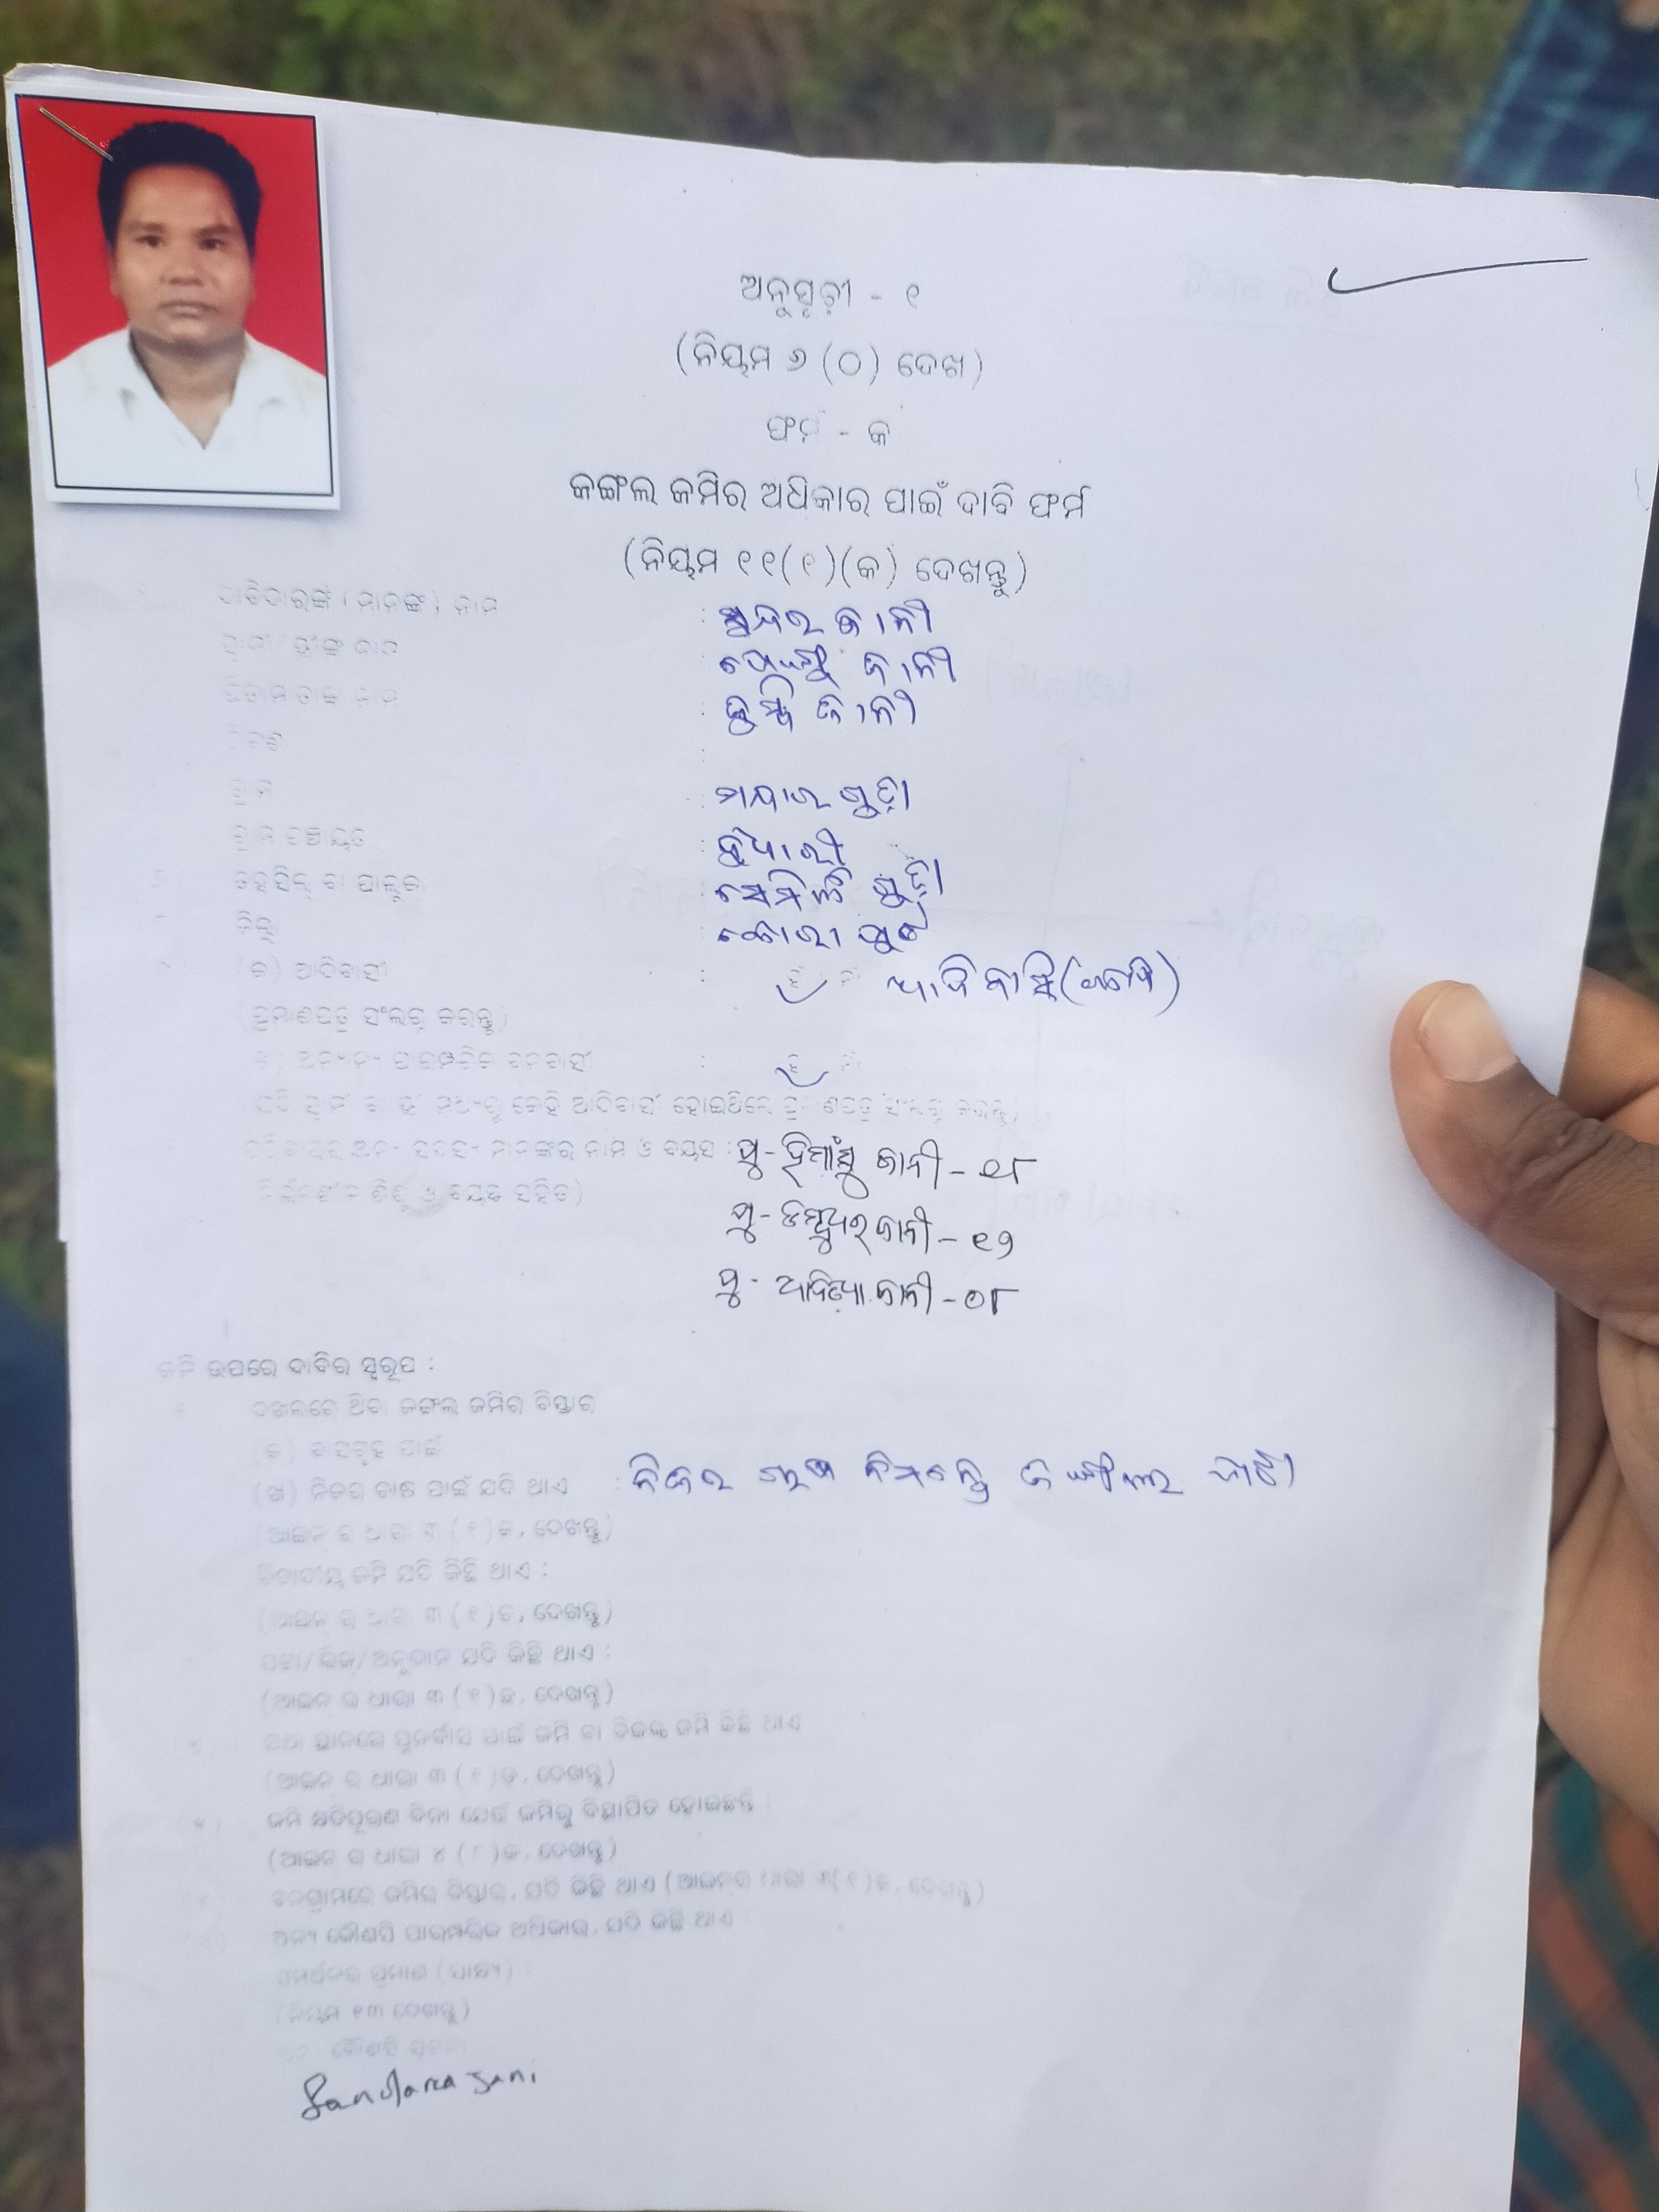 ଅନୁସୂଚୀ - ୧
(ନିୟମ ୬ (୦) ଦେଖ)
ଫର୍ମ - କ
ଜଙ୍ଗଲ ଜମିର ଅଧିକାର ପାଇଁ ଦାବି ଫର୍ମ
(ନିୟମ ୧୧(୧)(କ) ଦେଖନ୍ତୁ)
ଦାବିଦାରଙ୍କ (ମାନଙ୍କ) ନାମ : ସୁନ୍ଦର ଜାନୀ
ଜାନୀ
ପିତାମାତାଙ୍କ ନାମ : ଜାନୀ
:
ଗ୍ରାମ : ଗୁଡ଼ା
ଗ୍ରାମ ପଞ୍ଚାୟତ :
ତହସିଲ୍ ବା ତାଲୁକା : ସେମିଳିଗୁଡ଼ା
ଜିଲ୍ଲା : କୋରାପୁଟ
(କ) ଆଦିବାସୀ : ହଁ ନା ଆଦିବାସି
(ପ୍ରମାଣପତ୍ର ସଂଲଗ୍ନ କରନ୍ତୁ)
(ଖ) ଅନ୍ୟାନ୍ୟ ପାରମ୍ପରିକ ବନବାସୀ : ହଁ ନା
କେହି ଆଦିବାସୀ ହୋଇଥିଲେ ପ୍ରମାଣପତ୍ର ସଂଲଗ୍ନ କରନ୍ତୁ)
ଅନ୍ୟ ସଦସ୍ୟ ମାନଙ୍କର ନାମ ଓ ବୟସ : ପୁ - ହିମାଁସୁ ଜାନୀ - ୧୮
ଶିଶୁ ଓ ବୟସ୍କ ସହିତ)
ପୁ - ଜାନୀ - ୧୨
ପୁ - ଆଦିତ୍ୟା ଜାନୀ - ୦୮
ଜମି ଉପରେ ଦାବିର ସ୍ୱରୂପ :
ଦଖଲରେ ଥିବା ଜଙ୍ଗଲ ଜମିର ବିସ୍ତାର
(କ) ବାସଗୃହ ପାଇଁ
(ଖ) ନିଜର ଚାଷ ପାଇଁ ଯଦି ଥାଏ : ନିଜର ଚାଷ ନିମନ୍ତେ
(ଆଇନ ର ଧାରା ୩ (୧)କ, ଦେଖନ୍ତୁ)
ବିବାଦୀୟ ଜମି ଯଦି କିଛି ଥାଏ :
(ଆଇନ ର ଧାରା ୩ (୧)ଚ, ଦେଖନ୍ତୁ)
ପଟ୍ଟା/ଲିଜ୍/ଅନୁଦାନ ଯଦି କିଛି ଥାଏ :
(ଆଇନ ର ଧାରା ୩ (୧)ଛ, ଦେଖନ୍ତୁ)
ଯଥା ସ୍ଥାନରେ ପୁନର୍ବାସ ପାଇଁ ଜମି ବା ବିକଳ୍ପ ଜମି କିଛି ଥାଏ
(ଆଇନ ର ଧାରା ୩ (୧) ଦେଖନ୍ତୁ)
ଜମି କ୍ଷତିପୂରଣ ବିନା ଯେଉଁ ଜମିରୁ ବିସ୍ଥାପିତ ହୋଇଛନ୍ତି
(ଆଇନ ର ଧାରା ୪ ଦେଖନ୍ତୁ)
ବନଗ୍ରାମରେ ଜମିର ବିସ୍ତାର, ଯଦି କିଛି ଥାଏ (ଆଇନର ଧାରା ୩(୧)ଜ, ଦେଖନ୍ତୁ)
ଅନ୍ୟ କୌଣସି ପାରମ୍ପରିକ ଅଧିକାର, ଯଦି କିଛି ଥାଏ
ସମର୍ଥନର ପ୍ରମାଣ (ସାକ୍ଷ୍ୟ) :
(ନିୟମ ୧୩ ଦେଖନ୍ତୁ)
କୌଣସି
Sandara Jani